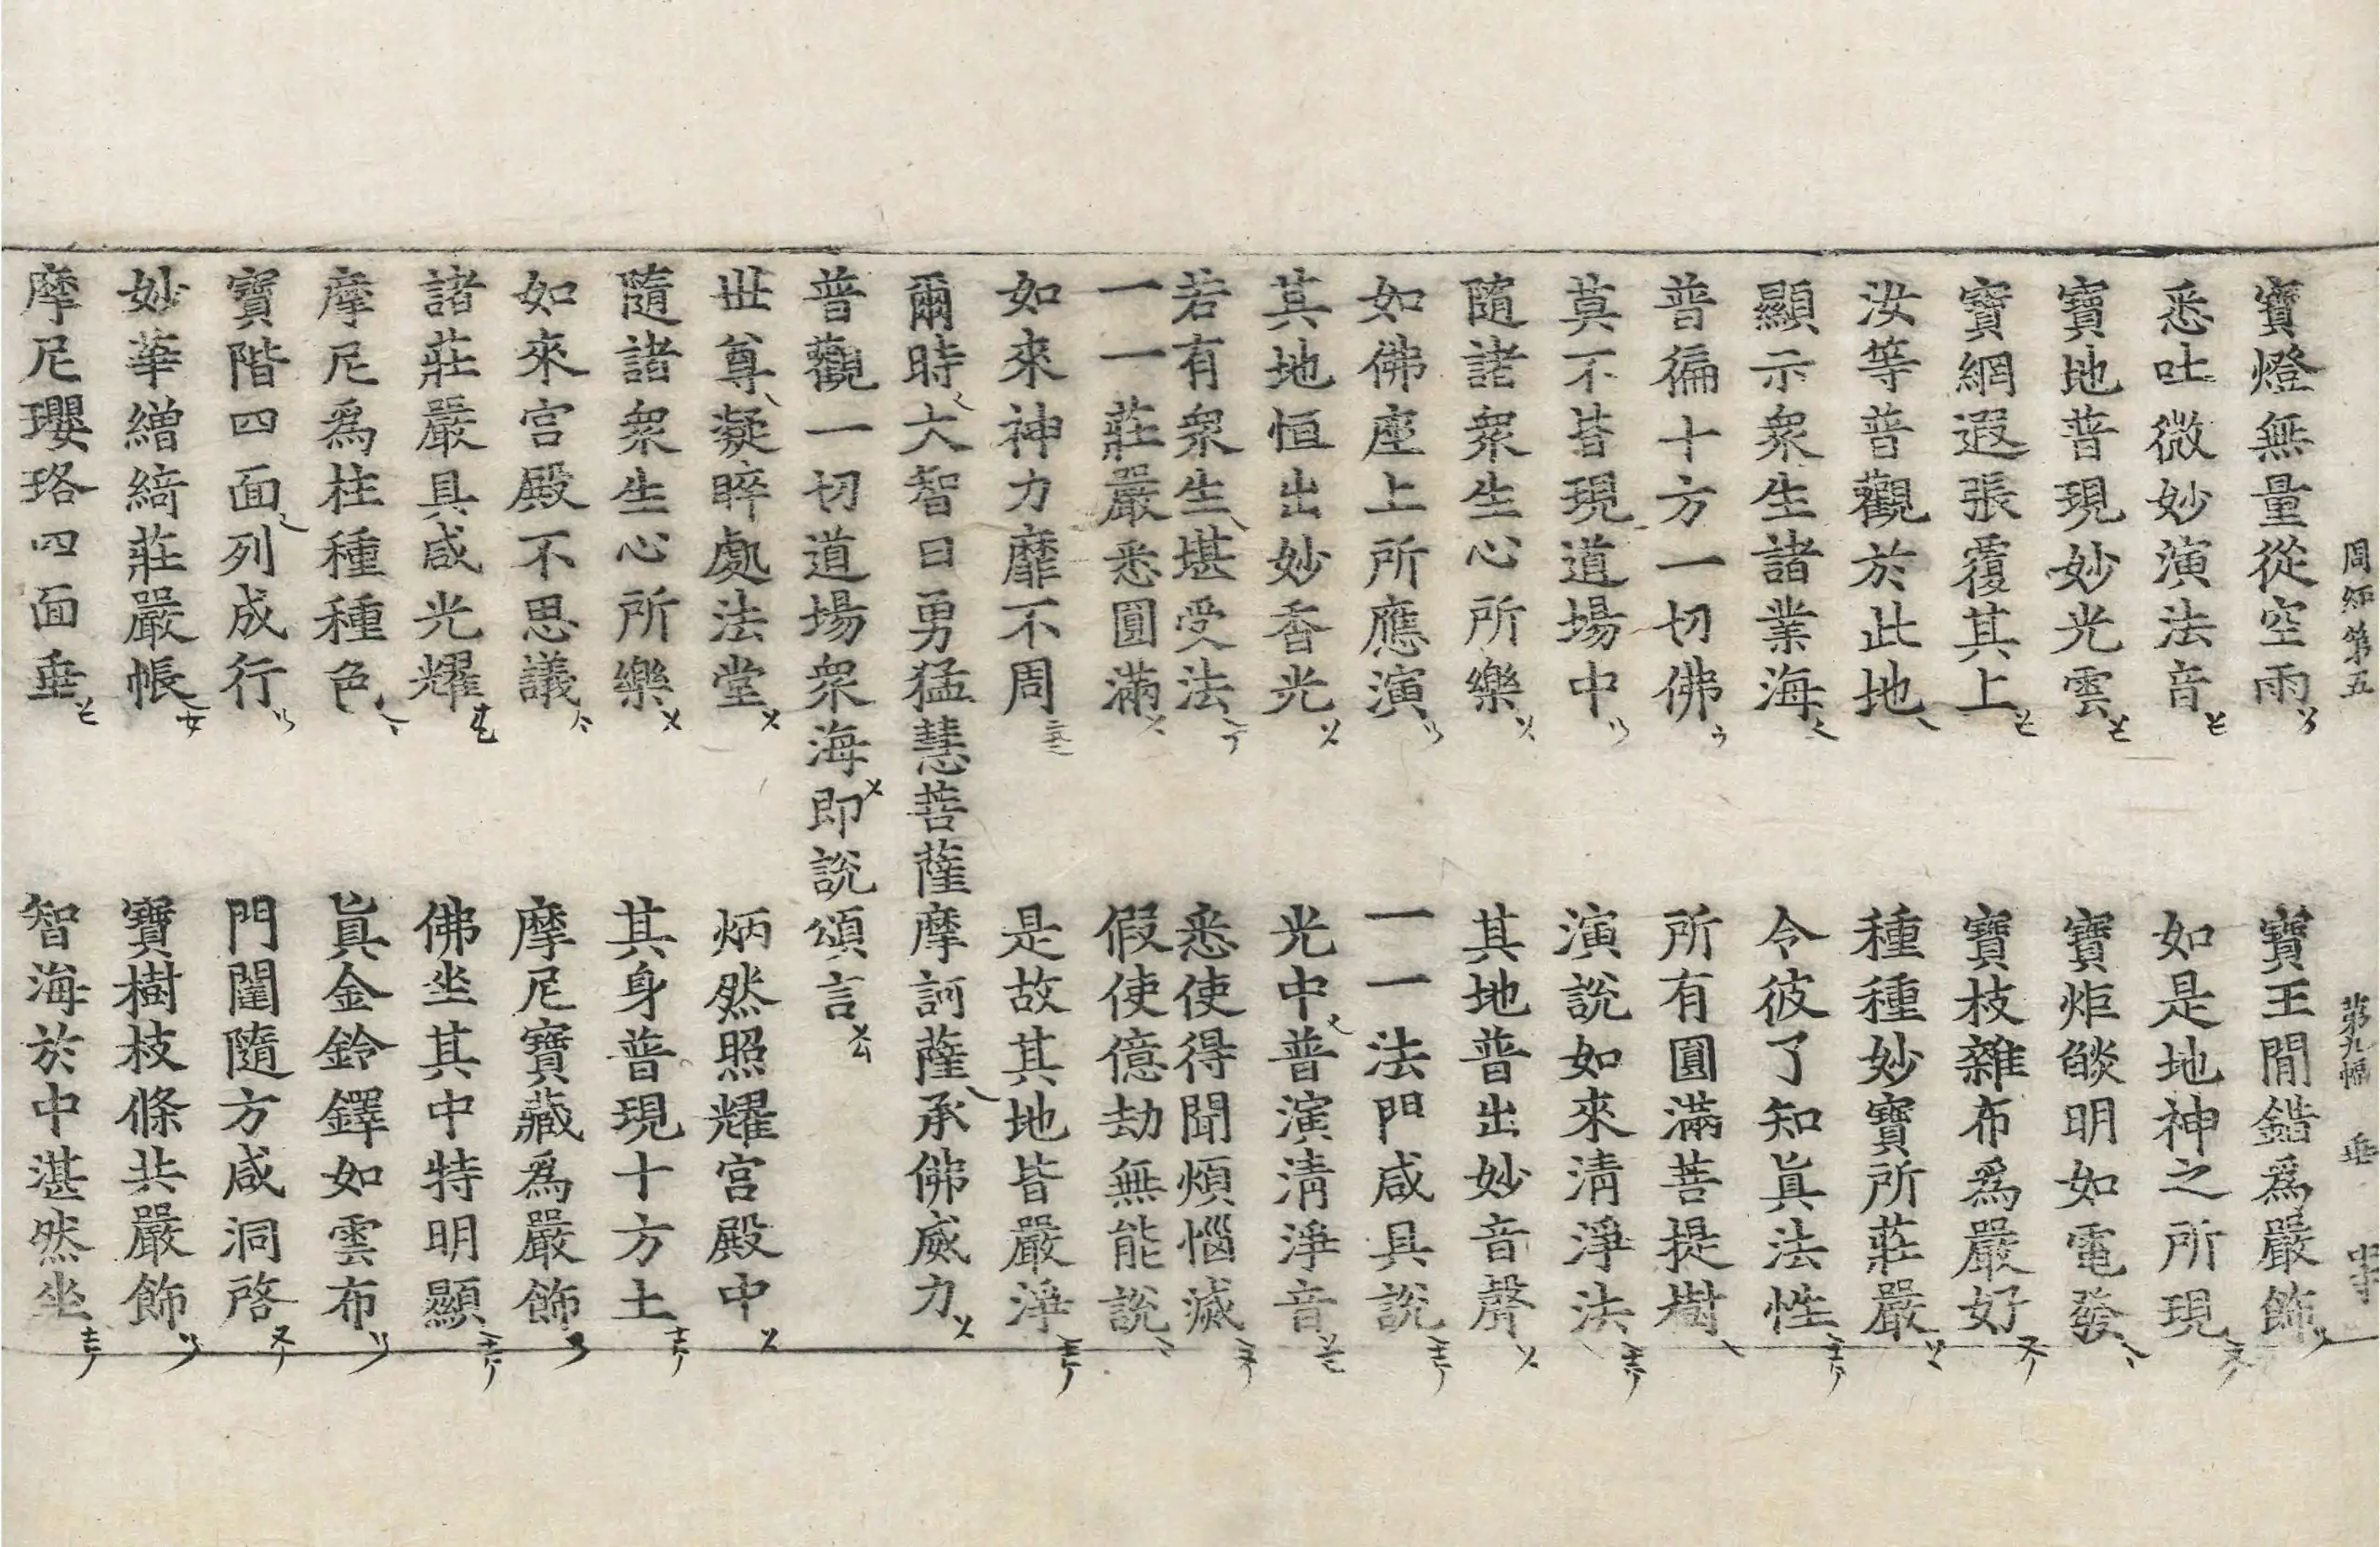 周經第五 第九幅 垂
寶燈無量從空雨 寶王間錯爲嚴飾
悉吐微妙演法音 如是地神之所現
寶地普現妙光雲 寶炬㷔明如電發
寶網遐張覆其上 寶枝雜布爲嚴好
汝等普觀於此地 種種妙寶所莊嚴
顯示衆生諸業海 令彼了知眞法性
普徧十方一切佛 所有圓滿菩提樹
莫不皆現道場中 演說如來清淨法
隨諸衆生心所樂 其地普出妙音聲
如佛座上所應演 一一法門咸具說
其地恒出妙香光 光中普演清淨音
若有衆生堪受法 悉使得聞煩惱滅
一一莊嚴悉圓滿 假使億劫無能說
如來神力靡不周 是故其地皆嚴淨
爾時大智日勇猛慧菩薩摩訶薩承佛威力
普觀一切道場衆海即說頌言
世尊凝睟處法堂 炳然照耀宮殿中
隨諸衆生心所樂 其身普現十方土
如來宮殿不思議 摩尼寶藏爲嚴飾
諸莊嚴具咸光耀 佛坐其中特明顯
摩尼爲柱種種色 眞金鈴鐸如雲布
寶階四面列成行 門闥隨方咸洞啓
妙華繒綺莊嚴帳 寶樹枝條共嚴飾
摩尼瓔珞四面垂 智海於中湛然坐